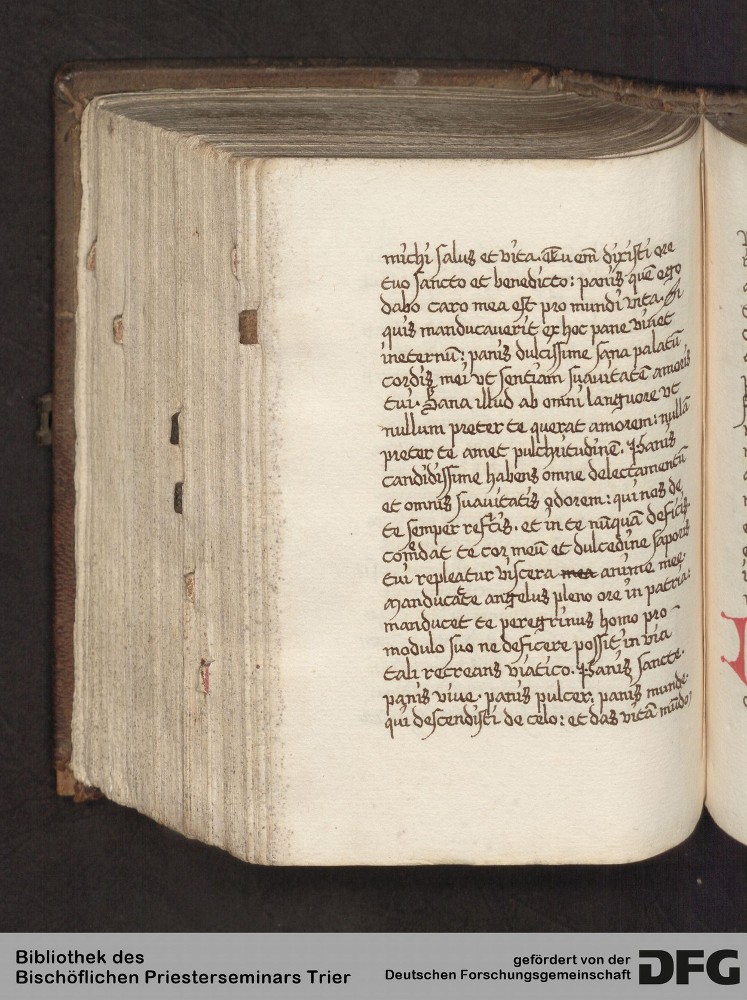 michi salus et vita. Tu em̄ dixisti ore
tuo sancto et benedicto: panis quē ego
dabo caro mea est pro mundi vita. Si
quis manducaverit ex hoc pane viuet
ineternū: panis dulcissime sana palatū
cordis mei vt sentiam suauitatē amoris
tui. Sana illud ab omni languore vt
nullum preter te querat amorem: nullā
preter te amet pulchritudinē. Panis
candidissime habens omne delectamentū
et omnis suauitatis odorem: qui nos de
te semper refic̄is. et in te nūquā deficis.
Comedat te cor meū et dulcedine saporis
tui repleatur viscera mea anime mee
Manducat te angelus pleno ore in patria:
manducet te peregrinus homo pro
modulo suo ne deficere possit in via
tali recreans viatico. Panis sancte.
panis viue. panis pulcer: panis munde.
qui descendisti de celo: et das vitā mūdo:
Bibliothek des
Bischöflichen Priesterseminars Trier
gefördert von der
Deutschen Forschungsgemeinschaft
DFG